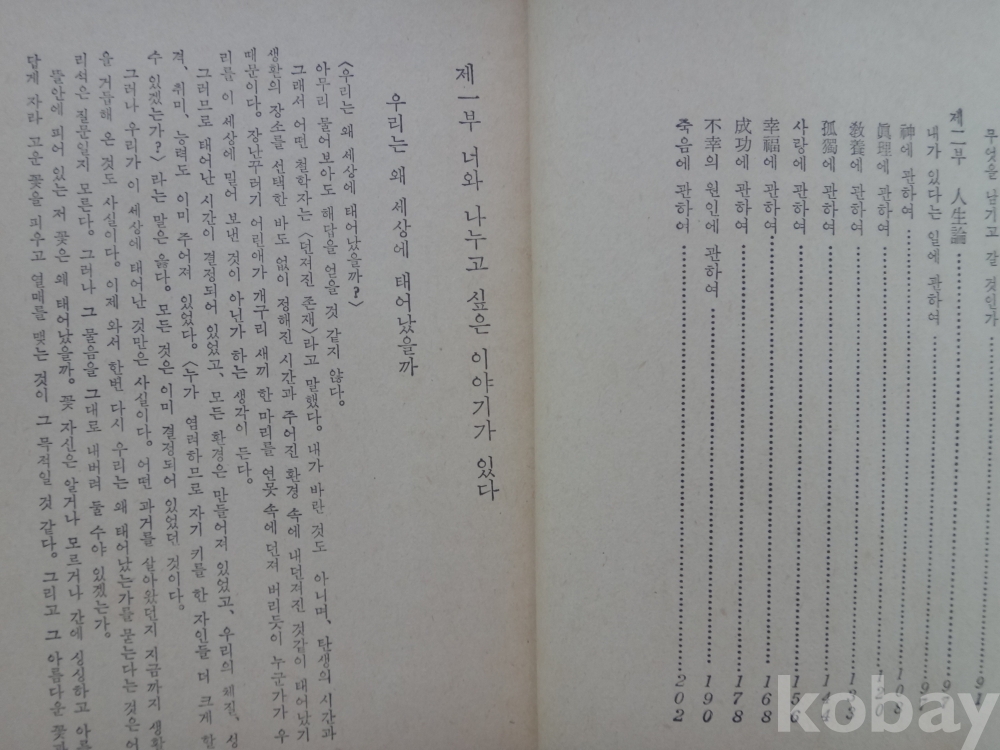 무엇을 남기고 갈 것인가
제二부 人生論
내가 있다는 일에 관하여
神에 관하여 108
眞理에 관하여
敎養에 관하여
孤獨에 관하여 144
사랑에 관하여 156
幸福에 관하여 168
成功에 관하여 178
不幸의 원인에 관하여 190
죽음에 관하여 202
제一부 너와 나누고 싶은 이야기가 있다
우리는 왜 세상에 태어났을까
〈우리는 왜 세상에 태어났을까?〉
아무리 물어보아도 해답을 얻을 것 같지 않다.
그래서 어떤 철학자는 〈던져진 존재〉라고 말했다. 내가 바란 것도 아니며, 탄생의 시간과
생활의 장소를 선택한 바도 없이 정해진 시간과 주어진 환경 속에 내던져진 것같이 태어났기
때문이다. 장난꾸러기 어린애가 개구리 새끼 한 마리를 연못 속에 던져 버리듯이 누군가가 우
리를 이 세상에 밀어 보낸 것이 아닌가 하는 생각이 든다.
그러므로 태어난 시간이 결정되어 있었고, 모든 환경은 만들어져 있었고, 우리의 체질, 성
격, 취미, 능력도 이미 주어져 있었다. 〈누가 염려하므로 자기 키를 한 자인들 더 크게 할
수 있겠는가?〉 라는 말은 옳다. 모든 것은 이미 결정되어 있었던 것이다.
그러나 우리가 이 세상에 태어난 것만은 사실이다. 어떤 과거를 살아왔던지 지금까지 생활
을 거듭해 온 것도 사실이다. 이제 와서 한번 다시 우리는 왜 태어났는가를 묻는다는 것은 어
리석은 질문일지 모른다. 그러나 그 물음을 그대로 내버려 둘 수야 있겠는가.
뜰안에 피어 있는 저 꽃은 왜 태어났을까. 꽃 자신은 알거나 모르거나 간에 싱싱하고 아름
답게 자라 고운 꽃을 피우고 열매를 맺는 것이 그 목적일 것 같다. 그리고 그 아름다운 꽃과
kobay